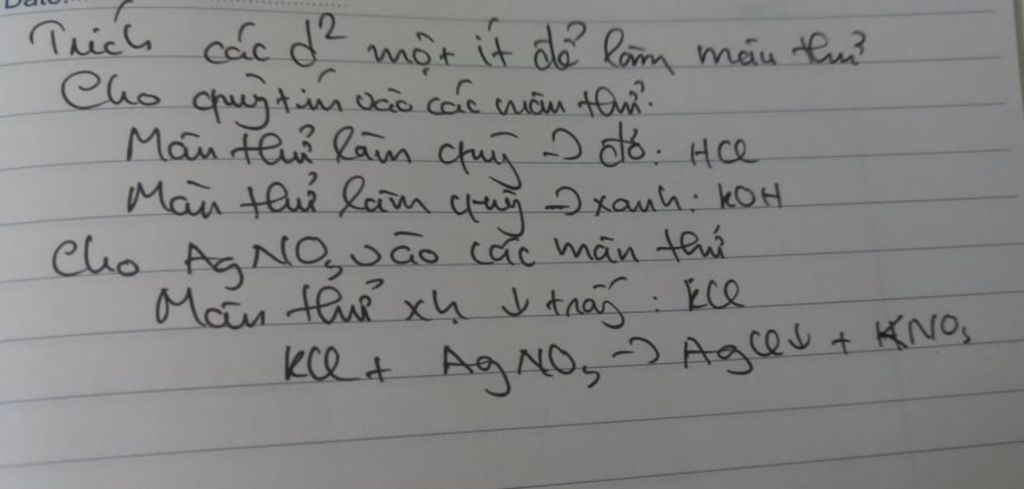 Trích các d² một ít để làm mẫu thử
Cho quỳ tím vào các mẫu thử.
Mẫu thử làm quỳ → đỏ: HCl
Mẫu thử làm quỳ → xanh: KOH
Cho AgNO₃ vào các mẫu thử
Mẫu thử xh ↓ trắng: KCl
KCl + AgNO₃ → AgCl↓ + KNO₃